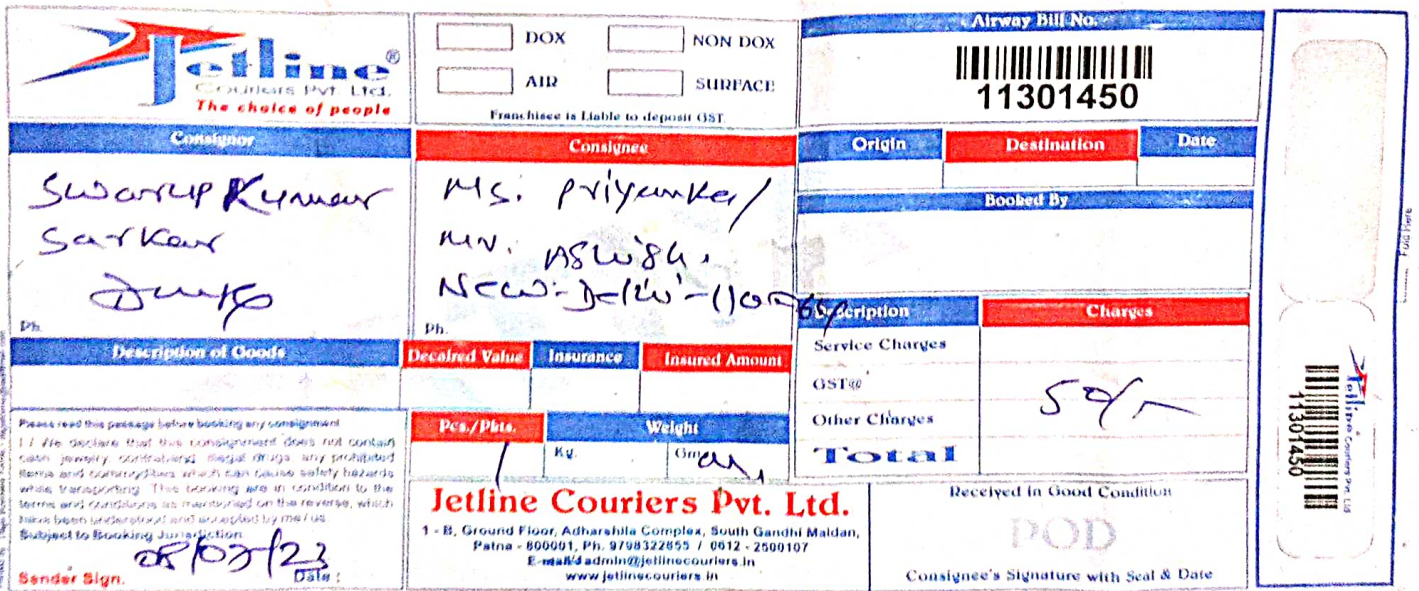 Jetline®
Couriers Pvt. Ltd.
The choice of people
DOX NON DOX
AIR SURFACE
Franchisee is Liable to deposit GST.
Airway Bill No.
11301450
Consignor
Swarup Kumar
Sarkar
Ph.
Consignee
Ms. Priyanka/
Mr. Ashish.
New-Delhi-
Ph.
Origin Destination Date
Booked By
Description Charges
Service Charges
GST@
Other Charges
Total
50/-
Description of Goods Decalred Value Insurance Insured Amount
Pcs./Pkts. Weight
1 Kg. Gm
Please read this passage before booking any consignment
I / We declare that this consignment does not contain
cash jewelry, contraband, illegal drugs, any prohibited
items and commodities which can cause safety hazards
while transporting. This booking are in condition to the
terms and conditions as mentioned on the reverse, which
have been understood and accepted by me / us.
Subject to Booking Jurisdiction
Sender Sign. Date :
Jetline Couriers Pvt. Ltd.
1 - B, Ground Floor, Adharshila Complex, South Gandhi Maidan,
Patna - 800001, Ph. 9798322655 / 0612 - 2500107
admin@jetlinecouriers.in
www.jetlinecouriers.in
Received in Good Condition
POD
Consignee's Signature with Seal & Date
Jetline Couriers Pvt. Ltd.
11301450
Fold Here